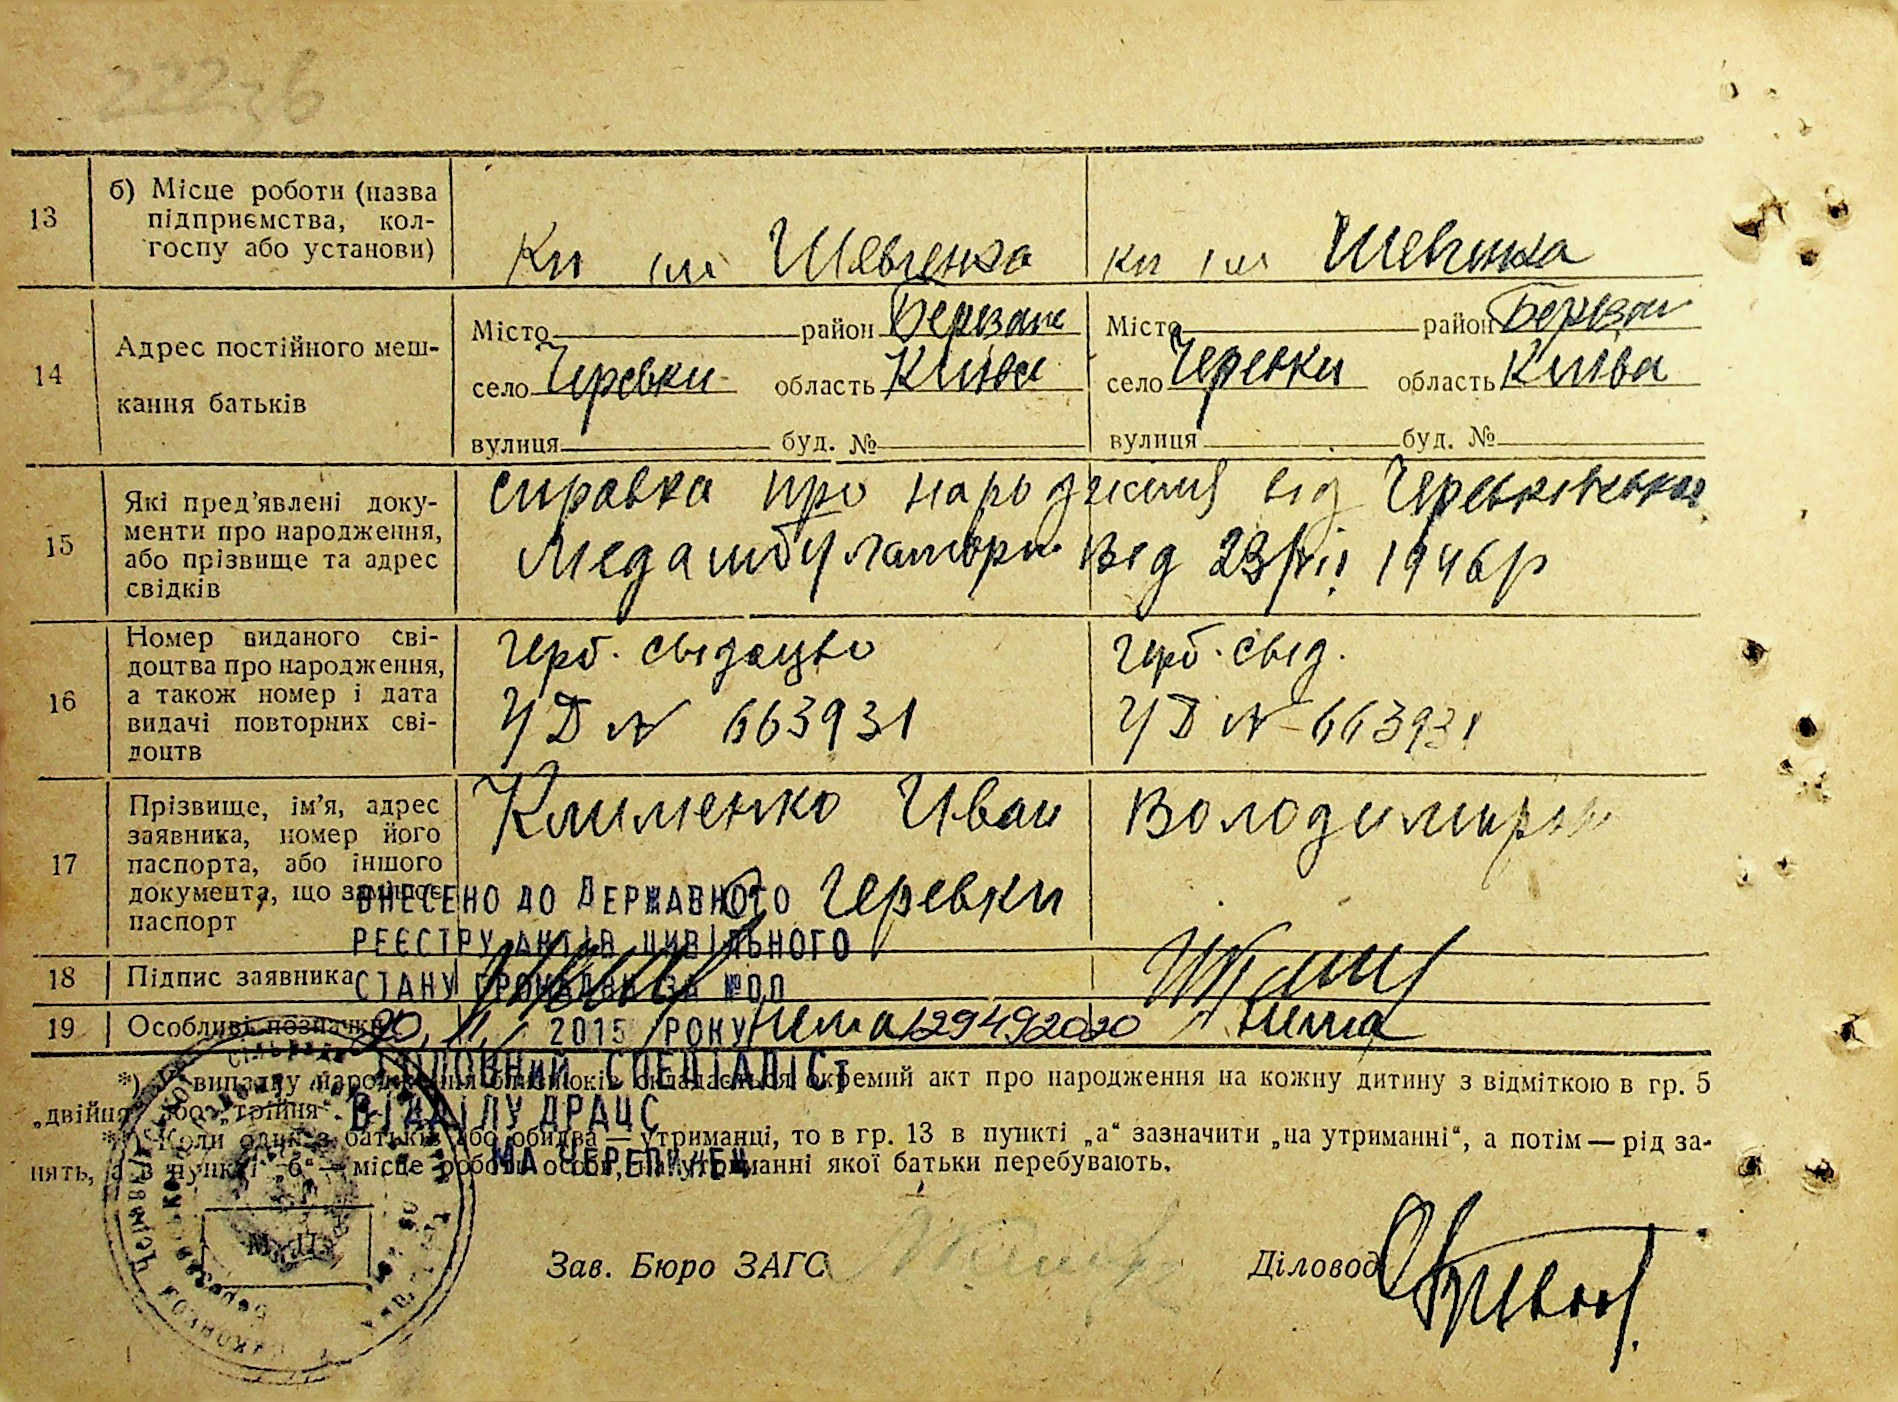 22236
13
б) Місце роботи (назва
підприємства, кол-
госпу або установи)
Кп ім Шевченка
кп ім Шевченка
14
Адрес постійного меш-
кання батьків
Місто район Березан
село Черевки область Київсь
вулиця буд. №
Місто район Березан
село Черевки область Київсь
вулиця буд. №
15
Які пред'явлені доку-
менти про народження,
або прізвище та адрес
свідків
справка про народження від Черевківської
Медамбулаторн від 23/VII 1946р
16
Номер виданого сві-
доцтва про народження,
а також номер і дата
видачі повторних сві-
доцтв
герб. свідоцтво
УД № 663931
герб. свід.
УД № 663931
17
Прізвище, ім'я, адрес
заявника, номер його
паспорта, або іншого
документа, що замінює
паспорт
Клименко Иван Володимиров
с Черевки
ВНЕСЕНО ДО ДЕРЖАВНОГО
РЕЄСТРУ АКТІВ ЦИВІЛЬНОГО
СТАНУ ГРОМАДЯН ЗА №00
18
Підпис заявника
19
Особливі позначки
20. 11. 2015 РОКУ нема 129492020 нема
ГОЛОВНИЙ СПЕЦІАЛІСТ
ВІДДІЛУ ДРАЦС
МА ЧЕРЕПИНЕЦ
*) У випадку народження близнюків складається окремий акт про народження на кожну дитину з відміткою в гр. 5
„двійня“ або „трійня“.
**) Коли один з батьків або обидва — утриманці, то в гр. 13 в пункті „а“ зазначити „на утриманні“, а потім — рід за-
нять, а в пункті „б“ — місце роботи особи, на утриманні якої батьки перебувають.
М. П.
Зав. Бюро ЗАГС
Діловод